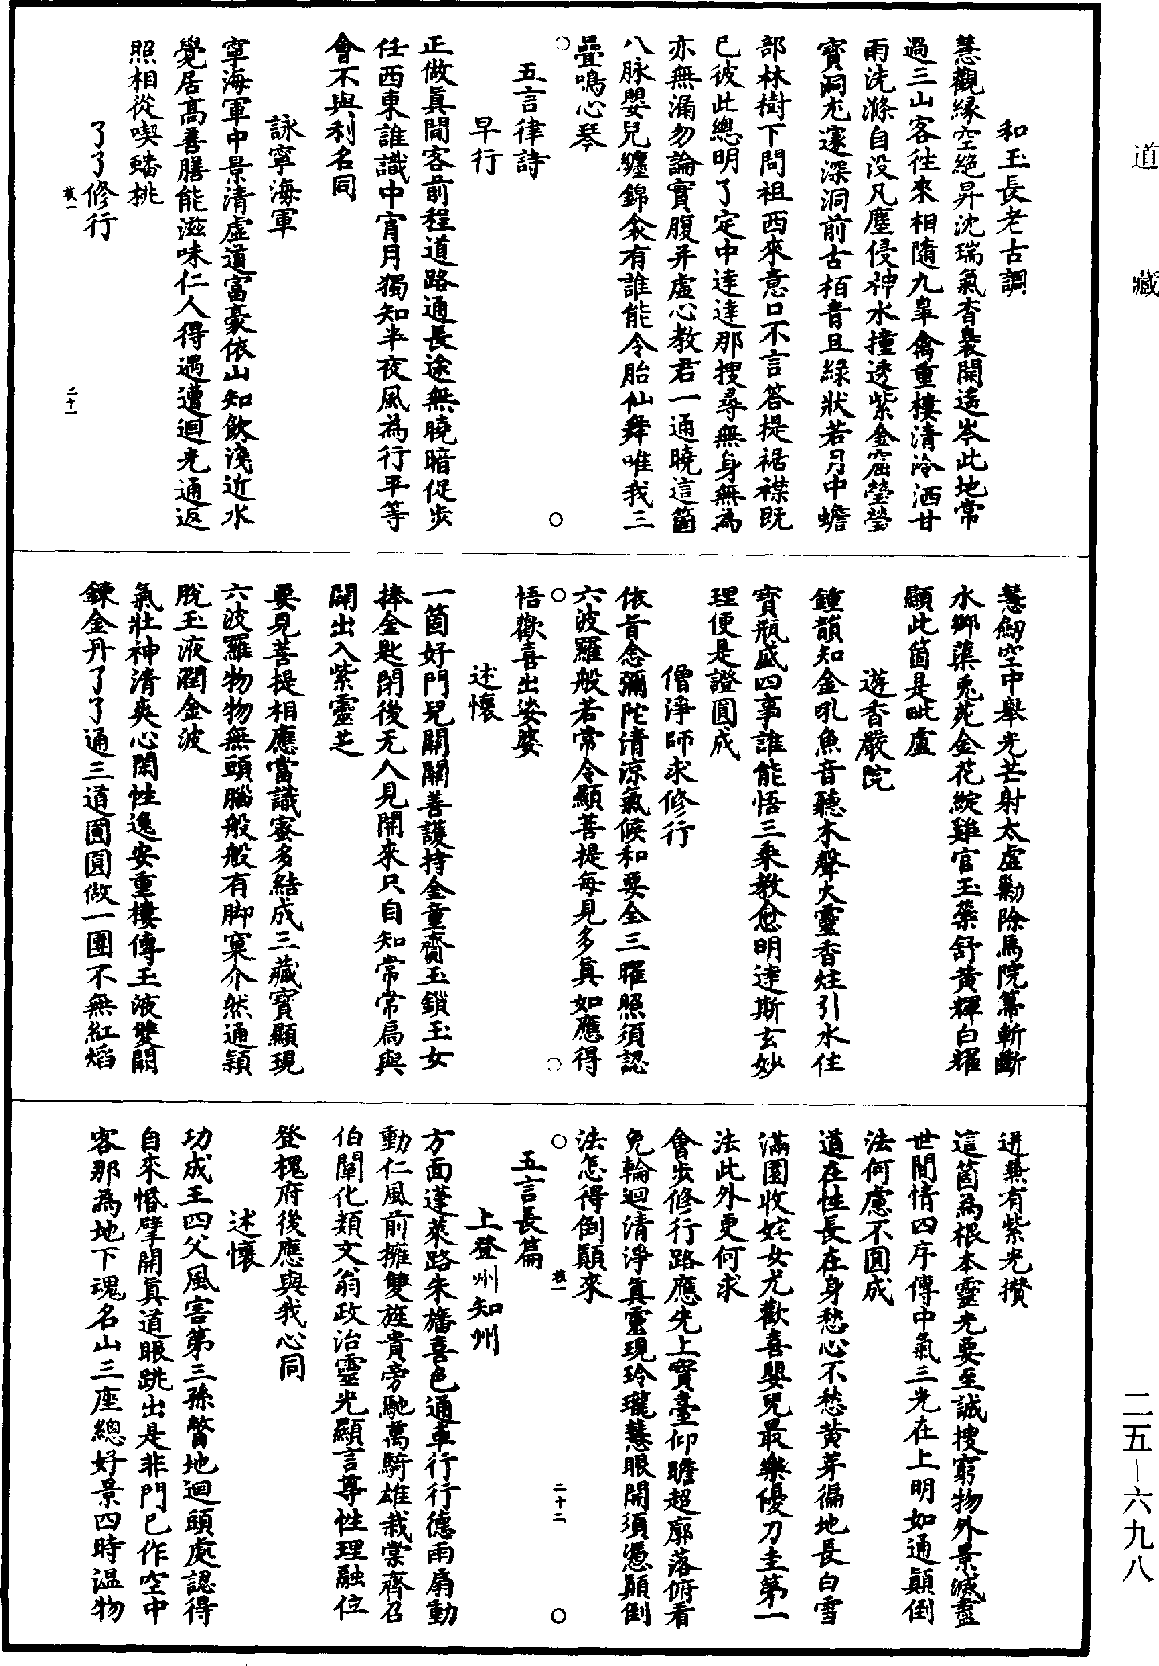 道藏
二五—六九八
和玉長老古調
慧觀緣空絕昇沈瑞氣杳裊開遙岑此地常
過三山客往來相隨九皐禽重樓清泠洒甘
雨洗滌自没凡塵侵神水撞透紫金窟瑩瑩
寳洞尤邃深洞前古栢青且綠狀若月中蟾
部林樹下問祖西來意口不言荅提裾襟既
已彼此總明了定中達達那搜尋無身無為
亦無漏勿論實腹并虛心教君一通曉這箇
八脉嬰兒纏錦衾有誰能令胎仙舜唯我三
疊鳴心琴
五言律詩
早行
正做真閒客前程道路通長途無曉暗促步
任西東誰識中宵月獨知半夜風為行平等
會不與利名同
詠寧海軍
寧海軍中景清虛道富豪依山知飲淺近水
覺居高善膳能滋味仁人得遇遭迴光通返
照相從喫蟠桃
了了修行
慧劒空中舉光芒射太虛勦除馬院幕斬斷
水鄉渠兎苑金花綻雞官玉蘂舒黃輝白耀
顯此箇是毗盧
遊香嚴院
鍾韻知金吼魚音聽木聲火靈香炷引水住
寳瓶盛四事誰能悟三乘教愈明達斯玄妙
理便是證圓成
僧淨師求修行
依旨念彌陀清涼氣候和要全三曜照須認
六波羅般若常令顯菩提每見多真如應得
悟歡喜出娑婆
述懷
一箇好門兒關關善護持金童賫玉鎖玉女
捧金匙閉後无人見開來只自知常常扃與
闢出入紫靈芝
要見菩提相應當識蜜多結成三藏寳顯現
六波羅物物無頭腦般般有脚窠介然通穎
脫玉液潤金波
氣壯神清爽心閑性逸安重樓傳玉液雙關
鍊金丹了了通三道圓圓做一團不無紅焰
迸兼有紫光攢
這箇為根本靈光要至誠搜窮物外景滅盡
世間情四序傳中氣三光在上明如通顛倒
法何慮不圓成
道在性長在身愁心不愁黃芽徧地長白雪
滿園收姹女尤歡喜嬰兒最樂優刀圭第一
法此外更何求
會步修行路應先上寳臺仰瞻超廓落俯看
免輪迴清淨真靈現玲瓏慧眼開須慿顛倒
法怎得倒顛來
五言長篇
上登州知州
方面蓬萊路朱旛喜色通車行行德雨扇動
動仁風前擁雙旌貴旁馳萬騎雄栽棠齊召
伯闡化類文翁政治靈光顯言尊性理融位
登槐府後應與我心同
述懷
功成王四父風害第三孫瞥地迴頭處認得
自來惛擘開真道眼跳出是非門已作空中
客那為地下魂名山三座總好景四時溫物